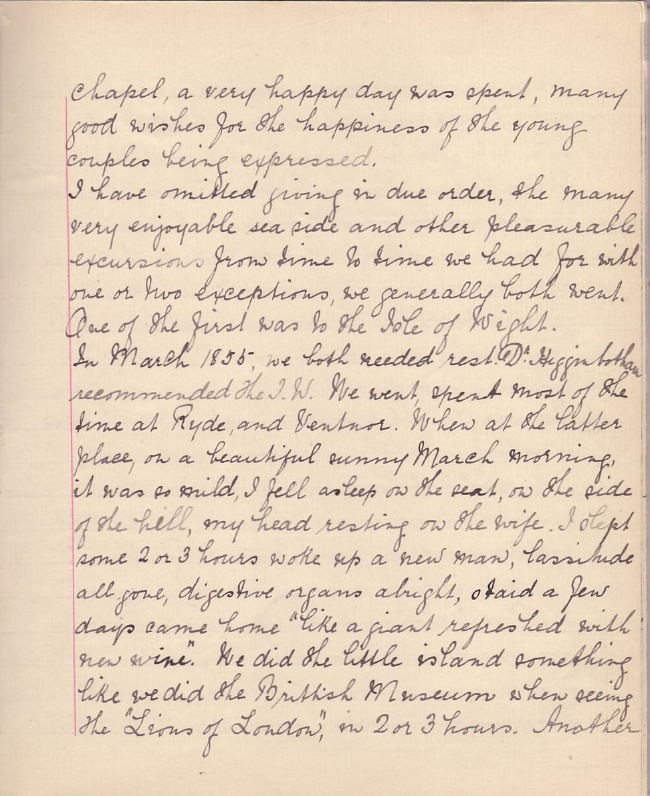 chapel, a very happy day was spent, many
good wishes for the happiness of the young
couples being expressed.
I have omitted giving in due order, the many
very enjoyable sea side and other pleasurable
excursions from time to time we had for with
one or two exceptions, we generally both went.
One of the first was to the Isle of Wight.
In March 1855, we both needed rest. Dr. Higginbotham
recommended the I.W. We went, spent most of the
time at Ryde, and Ventnor. When at the latter
place, on a beautiful sunny March morning,
it was so mild, I fell asleep on the seat, on the side
of the hill, my head resting on the wife. I slept
some 2 or 3 hours woke up a new man, lassitude
all gone, digestive organs alright, staid a few
days came home "like a giant refreshed with
new wine". We did the little island something
like we did the Brittish Museum when seeing
the "Lions of London", in 2 or 3 hours. Another